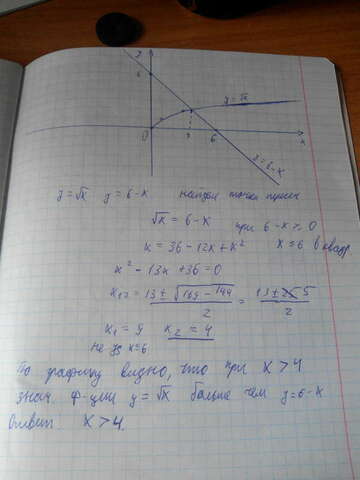 y
6
y = √x
0
6
x
y = 6 - x
y = √x y = 6 - x найти точки
√x = 6 - x при 6 - x ≥ 0
x = 36 - 12x + x² x ≤ 6 в квадр
x² - 13x + 36 = 0
x₁,₂ = 13 ± √169 - 144 / 2 = 13 ± 5 / 2
x₁ = 9 x₂ = 4
не уд x ≤ 6
По графику видно, что при x > 4
знач. ф-ции y = √x больше чем y = 6 - x
Ответ x > 4.